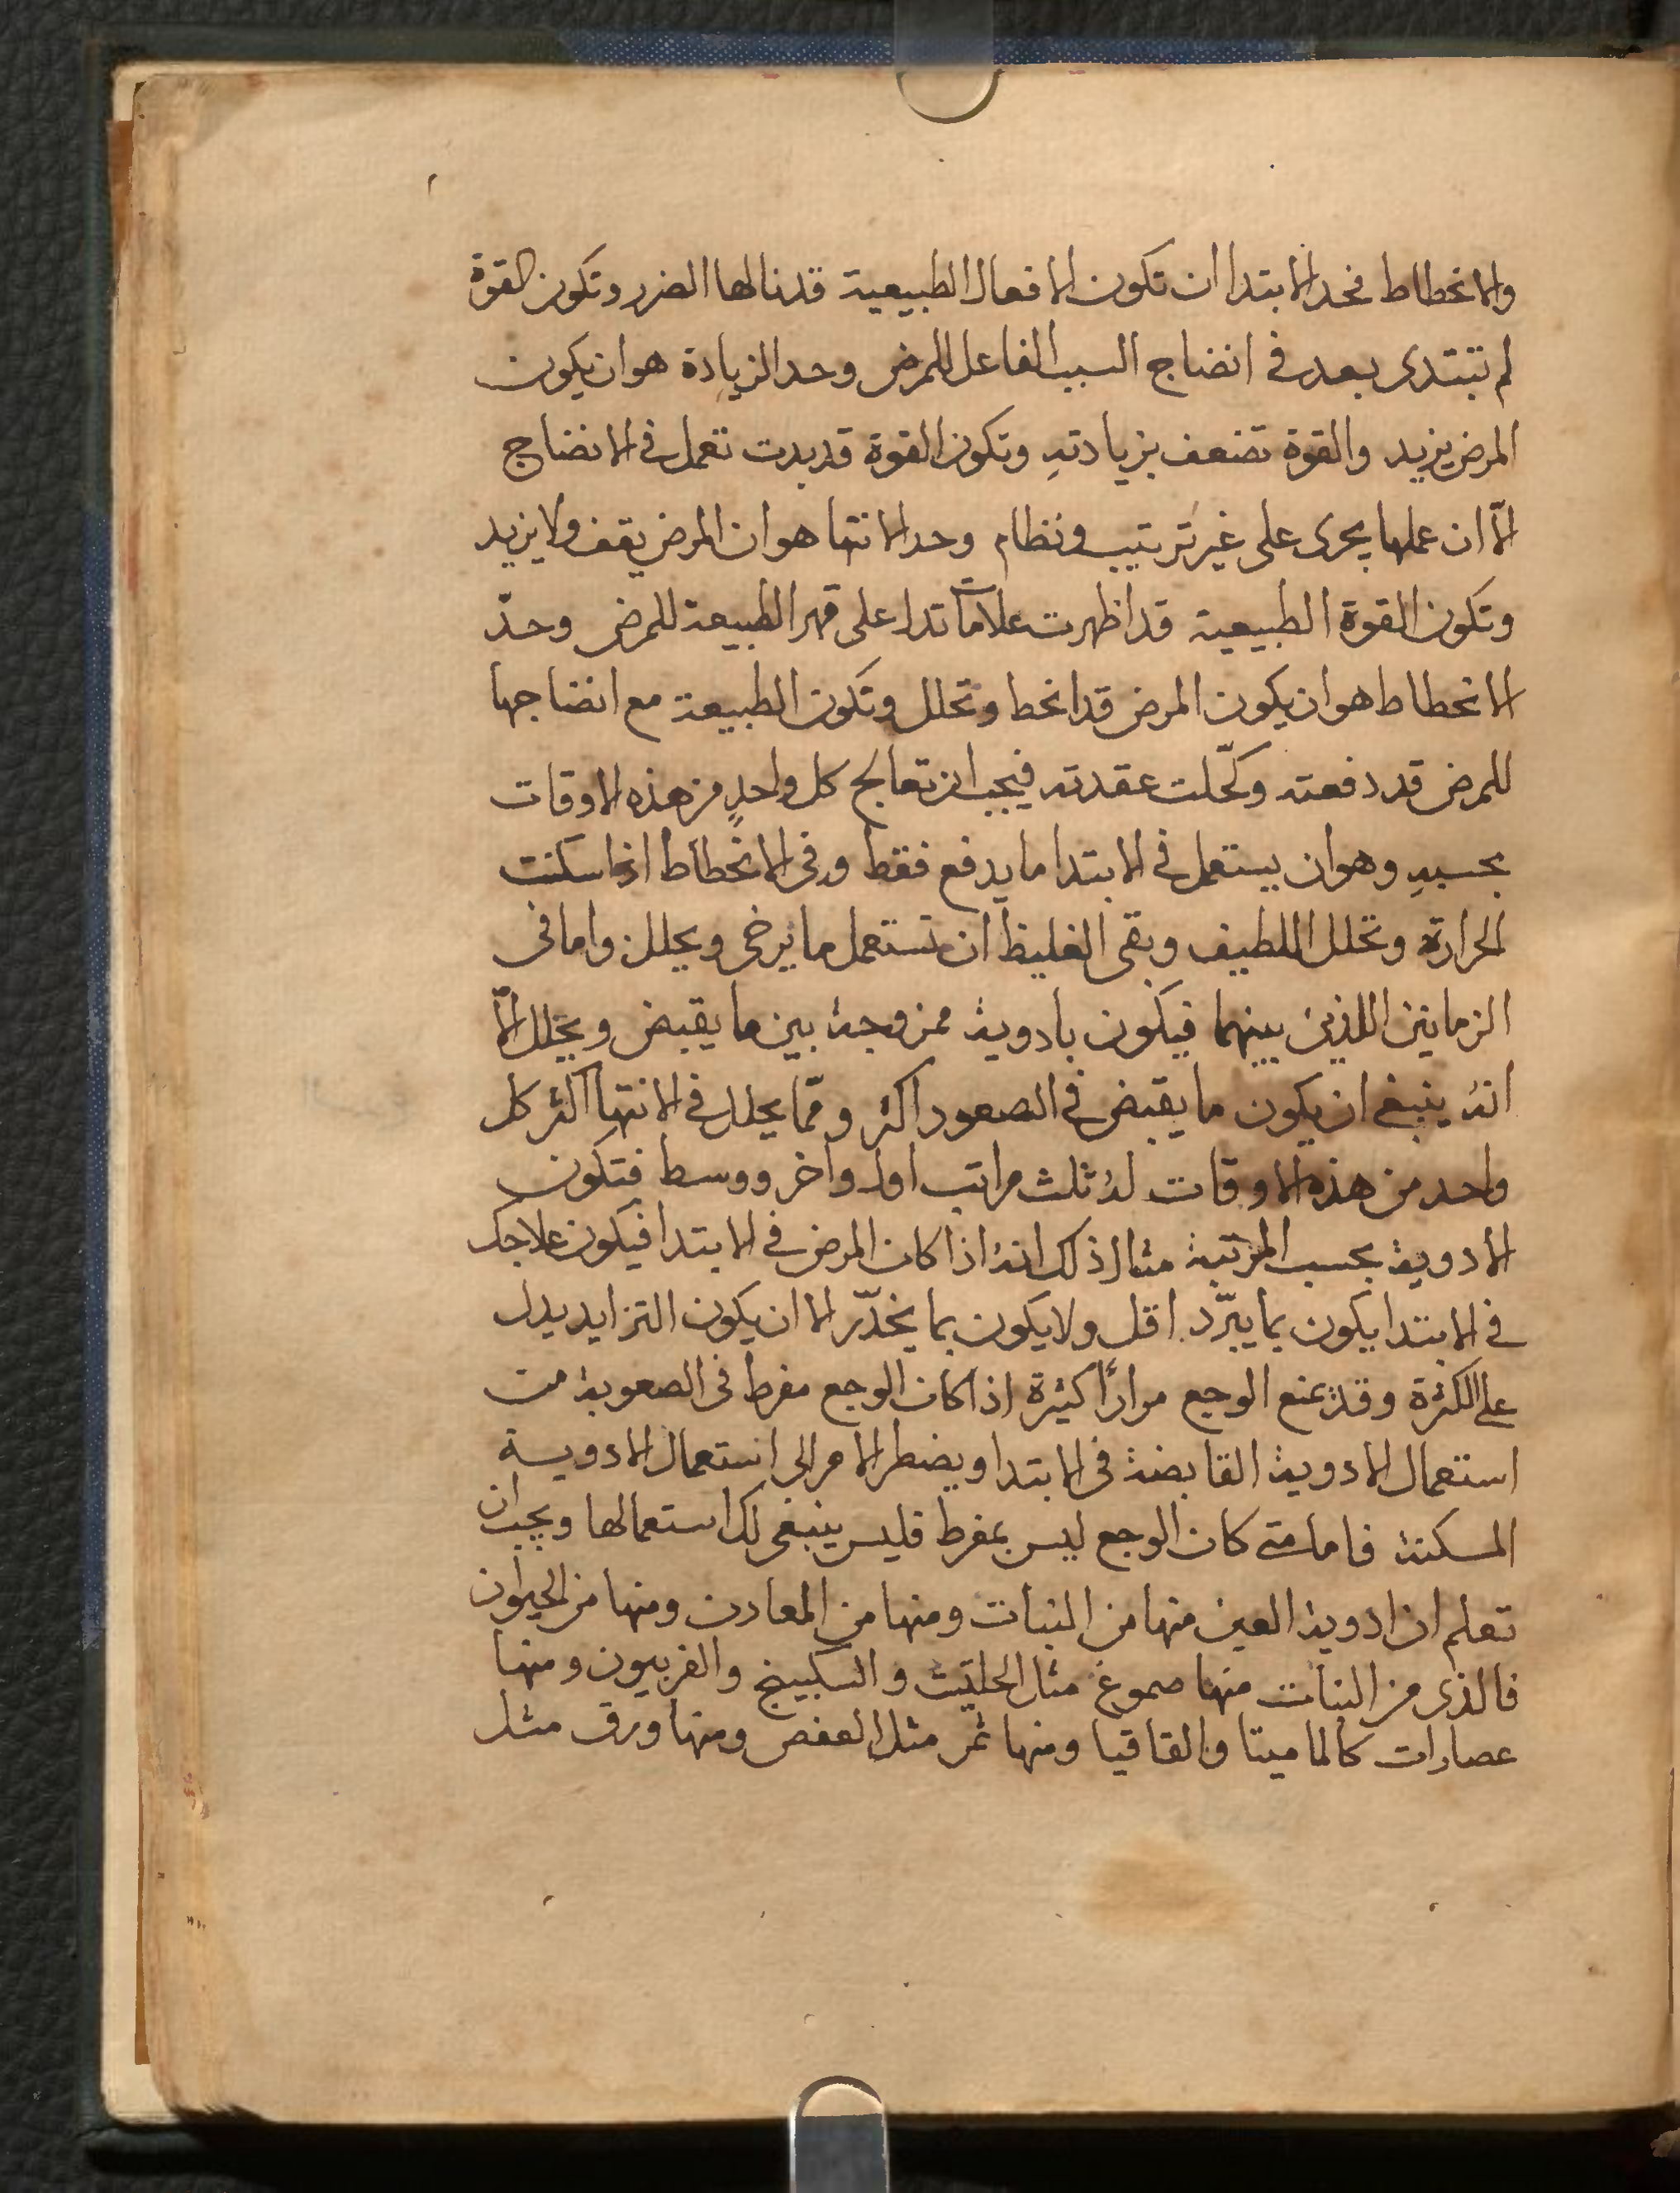 والانحطاط فحد الابتدا ان تكون الافعال الطبيعية قد نالها الضرر وتكون القوة
لم تبتدى بعد فى انضاج السبب الفاعل للمرض وحد الزيادة هو ان يكون
المرض يزيد والقوة تضعف بزيادتهِ وتكون القوة قد بدت تعمل فى الانضاج
الاّ ان عملها يجرى على غير ترتيب ونظام وحد الانتها هو ان المرض يقف ولا يزيد
وتكون القوة الطبيعية قد اظهرت علامات تدل على قهر الطبيعة للمرض وحدّ
الانحطاط هو ان يكون المرض قد انحط وتحلل وتكون الطبيعة مع انضاجها
للمرض قد دفعته وحّلت عقدته فيجب ان تعالج كل واحدٍ من هذه الاوقات
بحسبهِ وهو ان يستعمل فى الابتدا ما يدفع فقط وفى الانحطاط اذا سكنت
الحرارة وتحلل اللطيف وبقى الغليظ ان تستعمل ما يرخى ويحلل واما فى
الزمانين اللذين بينهما فيكون بادوية ممزوجة بين ما يقبض ويحلل الاّ
انه ينبغى ان يكون ما يقبض فى الصعود اكثر وممّا يحلل فى الانتها اكثر كل
واحد من هذه الاوقات له ثلث مراتب اول واخر ووسط فتكون
الادوية بحسب المرتبة مثال ذلك انه اذا كان المرض فى الابتدا فيكون علاجك
فى الابتدا يكون بما يبرّد اقل ولا يكون بما يخدّر الا ان يكون التزايد يدل
على الكثرة وقد يمنع الوجع مراراً كثيرة اذا كان الوجع مفرط فى الصعوبة من
استعمال الادوية القابضة فى الابتدا ويضطر الامر الى استعمال الادوية
المسكنة فاما متى كان الوجع ليس بمفرط فليس ينبغى لك استعمالها ويجب ان
تعلم ان ادوية العين منها من النبات ومنها من المعادن ومنها من الحيوان
فالذى من النبات منها صموغ مثل الحلتيت والسكبينج والفربيون ومنها
عصارات كالماميتا والقاقيا ومنها ثمر مثل العفص ومنها ورق مثل